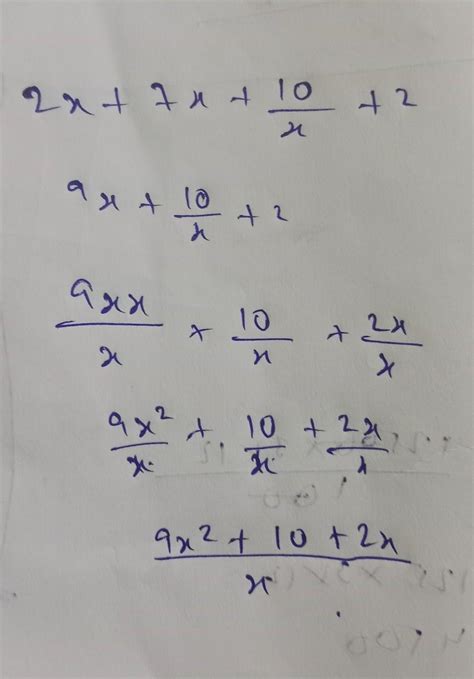 2x + 7x + 10/x + 2
9x + 10/x + 2
9xx/x + 10/x + 2x/x
9x²/x + 10/x + 2x/x
9x² + 10 + 2x/x